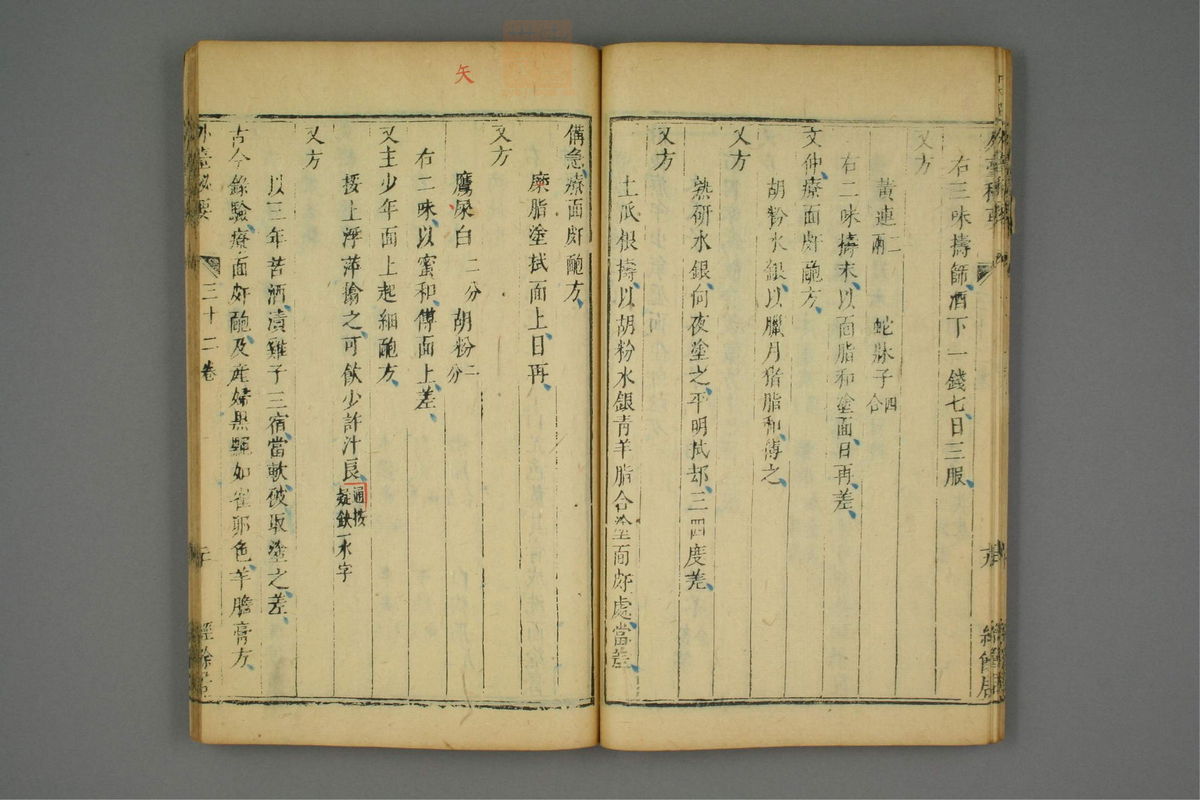 右三味擣篩酒下一錢七日三服
又方
黃連二兩 蛇牀子四合
右二味擣末以面脂和塗面日再差
文仲療面皯䵟方
胡粉水銀以臘月猪脂和傅之
又方
熟研水銀向夜塗之平明拭却三四度差
又方
土瓜根擣以胡粉水銀青羊脂合塗面皯處當差
備急療面皯䵟方
糜脂塗拭面上日再
又方
鷹屎白二分 胡粉二分
右二味以蜜和傅面上差
又主少年面上起細䵟方
挼上浮萍搶之可飲少許汁良通按疑缺一水字
又方
以三年苦酒漬雞子三宿當軟破取塗之差
古今錄驗療面皯䵟及產婦黑䵳如雀卵色羊膽膏方
外臺秘要 三十二卷 經餘居
矢